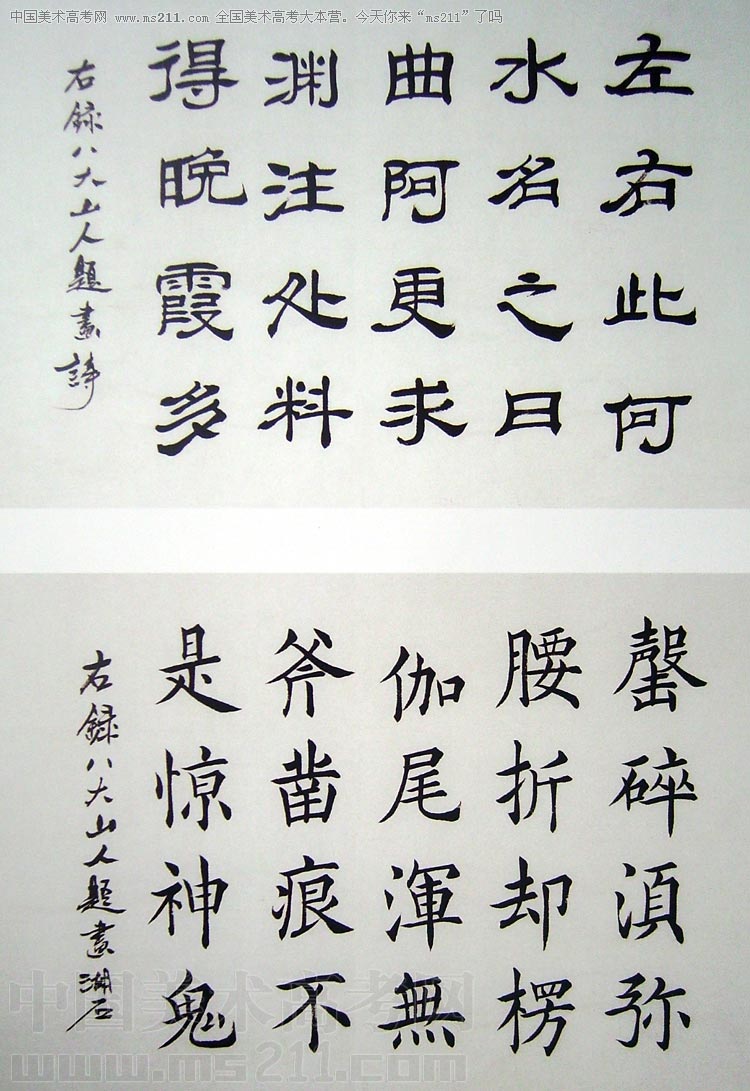 中国美术高考网 www.ms211.com 全国美术高考大本营。今天你来“ms211”了吗
左右此何
水名之曰
曲阿更求
渊注处料
得晚霞多
右録八大山人题畫詩
罄碎湏弥
腰折却楞
伽尾渾無
斧凿痕不
是惊神鬼
右録八大山人题畫湖石
中国美术高考网
www.ms211.com